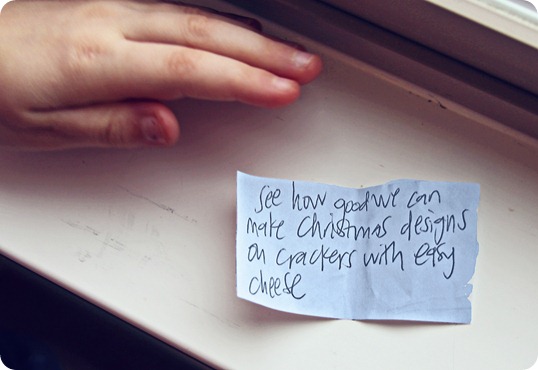 See how good we can
make Christmas designs
on crackers with easy
cheese